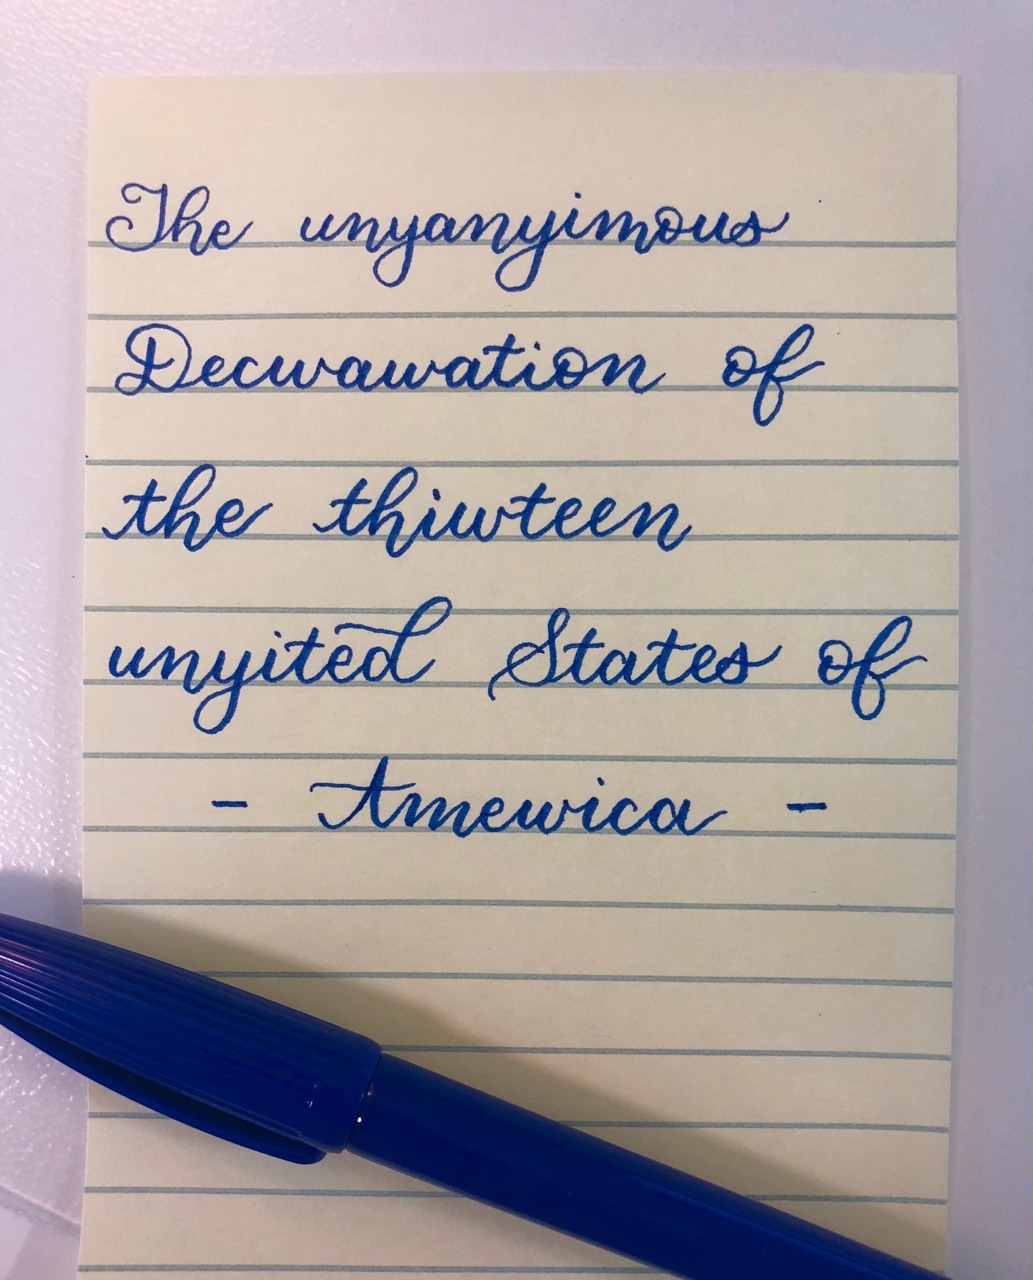 The unyanyimous
Decwawation of
the thiwteen
unyited States of
- Amewica -